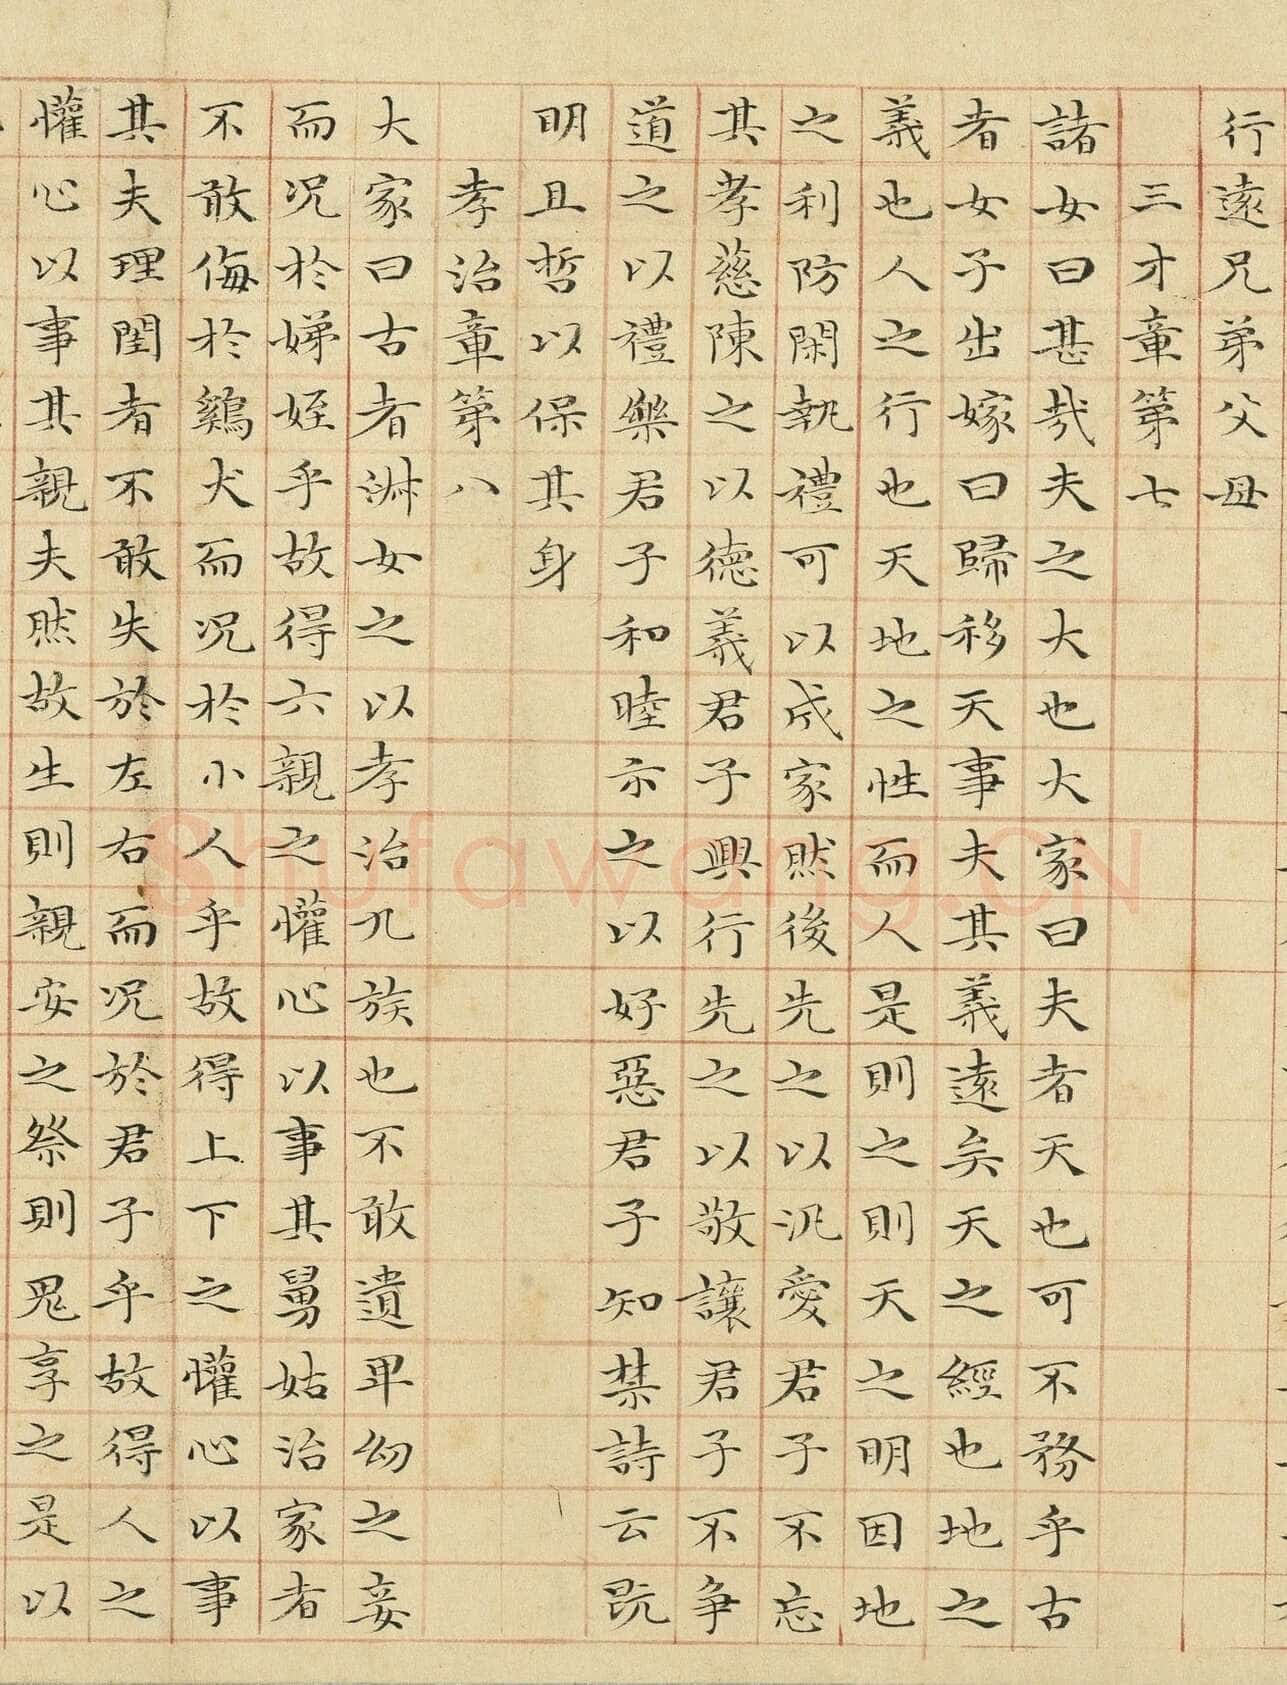 行遠兄弟父母
三才章第七
諸女曰甚哉夫之大也大家曰夫者天也可不務乎古
者女子出嫁曰歸移天事夫其義遠矣天之經也地之
義也人之行也天地之性而人是則之則天之明因地
之利防閑執禮可以成家然後先之以汎愛君子不忘
其孝慈陳之以德義君子興行先之以敬讓君子不争
道之以禮樂君子和睦示之以好惡君子知禁詩云既
明且哲以保其身
孝治章第八
大家曰古者淋女之以孝治九族也不敢遺卑幼之妾
而况於娣姪乎故得六親之懽心以事其舅姑治家者
不敢侮於鷄犬而况於小人乎故得上下之懽心以事
其夫理閨者不敢失於左右而况於君子乎故得人之
懽心以事其親夫然故生則親安之祭則鬼享之是以
Shufawang.CN